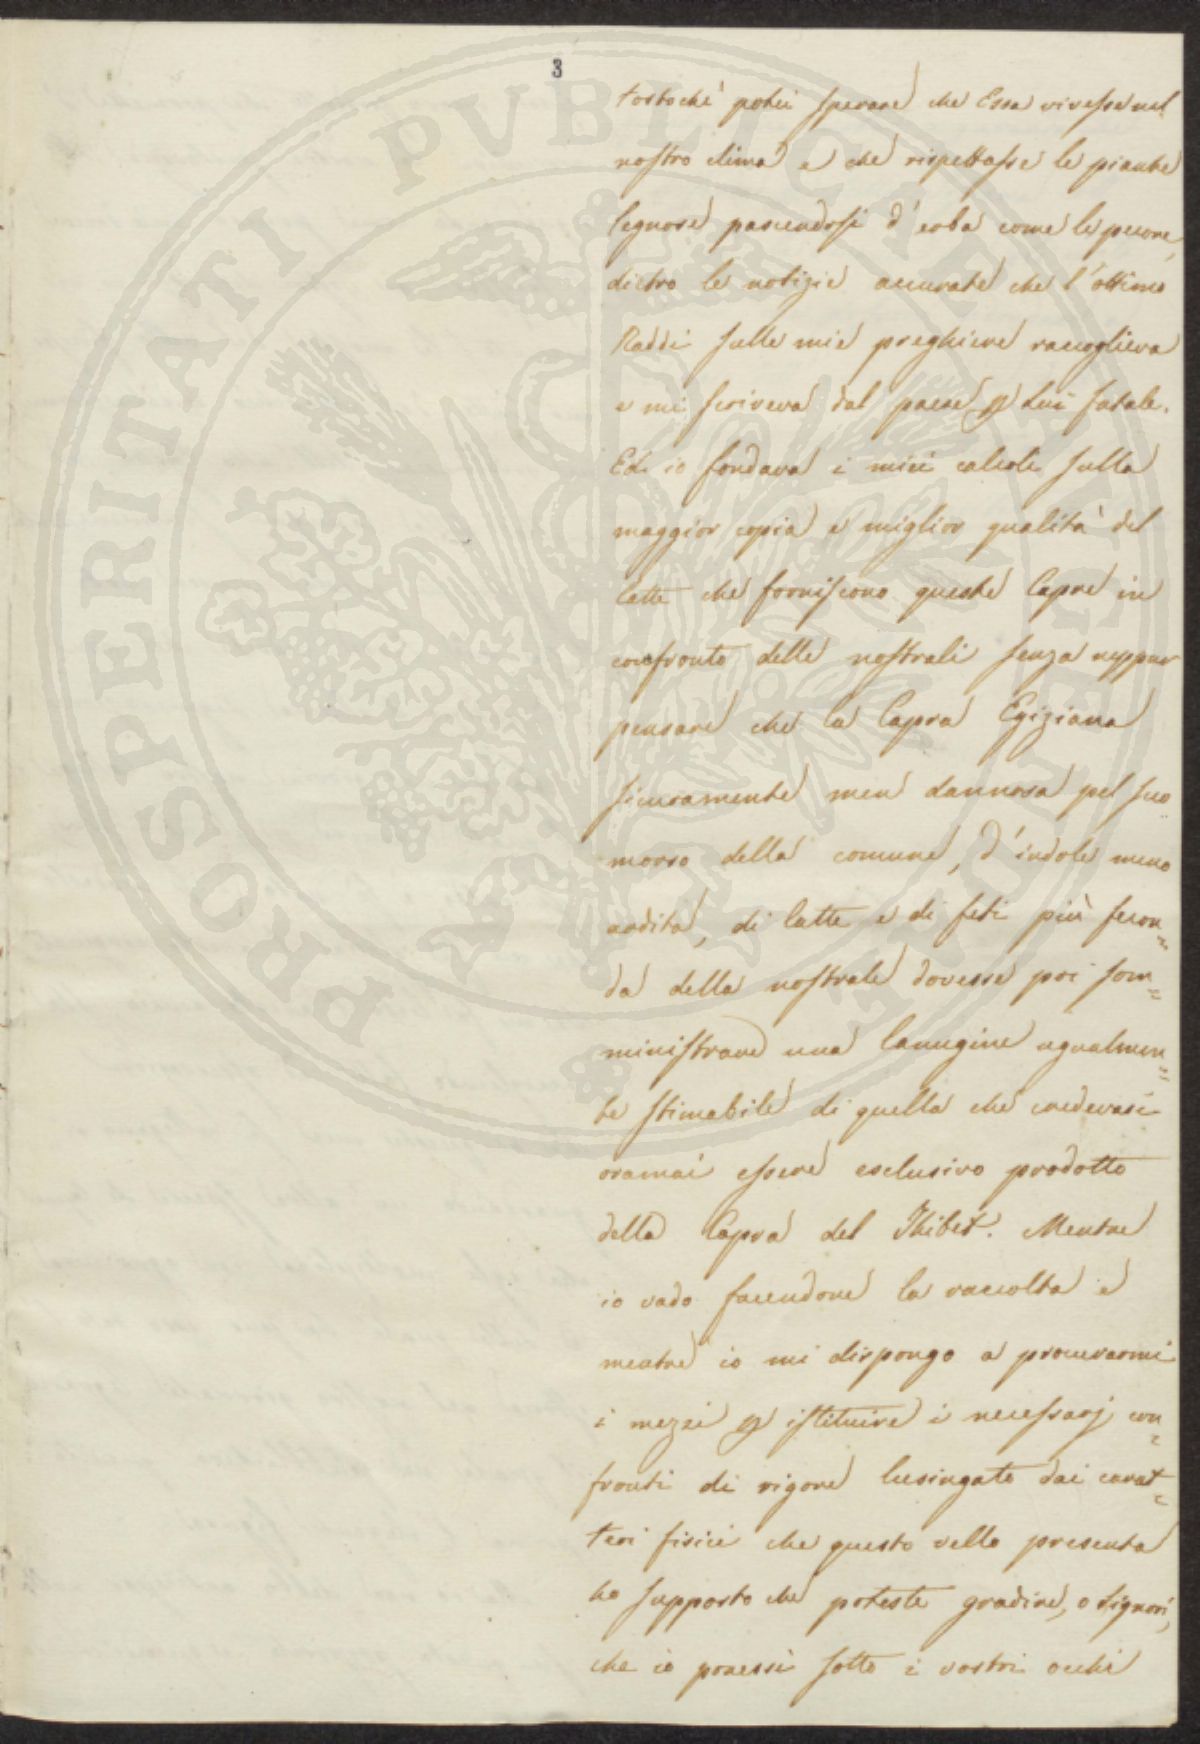 3
tostochè potei sperare che Essa vivesse nel
nostro clima e che rispettasse le piante
legnose pascendosi d'erba come le pecore,
dietro le notizie accurate che l'ottimo
Raddi sulle mie preghiere raccoglieva
e mi scriveva dal paese p Lui fatale.
Ed io fondava i miei calcoli sulla
maggior copia e miglior qualità del
latte che forniscono queste Capre in
confronto delle nostrali senza neppur
pensare che la Capra Egiziana
sicuramente men dannosa pel suo
morso della comune, d'indole meno
ardita, di latte e di feti più fecon=
da della nostrale dovesse poi som=
ministrare una lanugine ugualmen=
te stimabile di quella che credevasi
oramai essere esclusivo prodotto
della Capra del Thibet. Mentre
io vado facendone la raccolta e
mentre io mi dispongo a procurarmi
i mezzi p istituire i necessarj con=
fronti di rigore lusingato dai carat=
teri fisici che questo vello presenta
ho supposto che poteste gradire, o Signori,
che io ponessi sotto i vostri occhi
PROSPERITATI PVBLICAE AVGENDAE